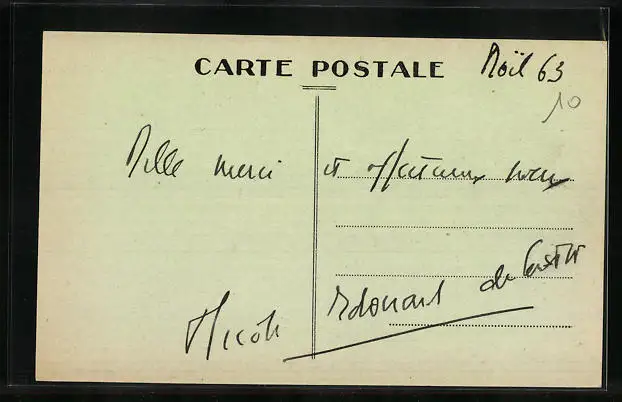 CARTE POSTALE
Noël 63
10
Mille merci et affectueux voeux
Nicole Edouard de